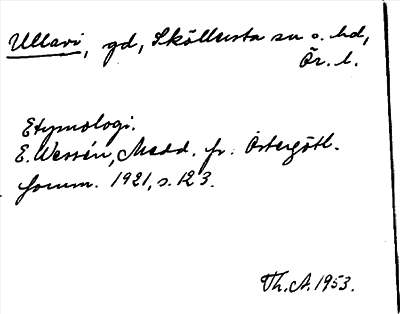 Ullavi, gd, Sköllersta sn o. hd,
Ör. l.
Etymologi.
E. Wessén, Medd. fr. Östergötl.
fornm. 1921, s. 123.
Th. A. 1953.